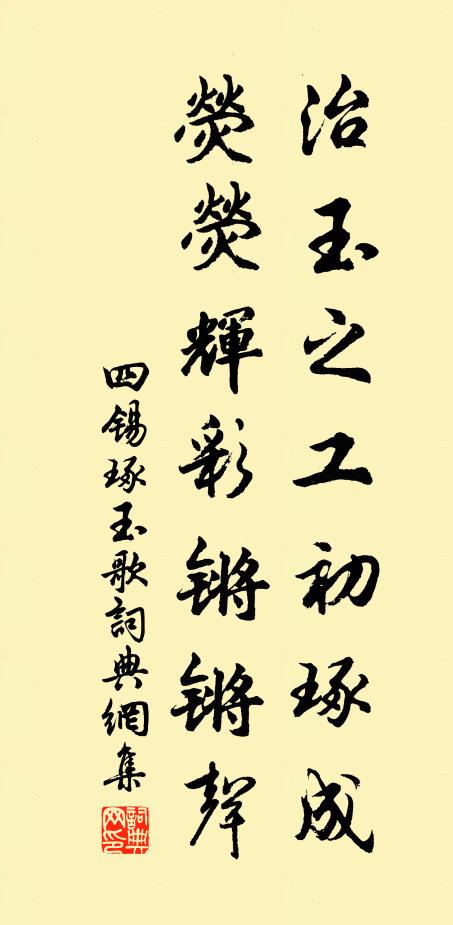 治玉之工初琢成
熒熒輝彩锵锵聲
四錫琢玉歌詞典網集
詞典網印